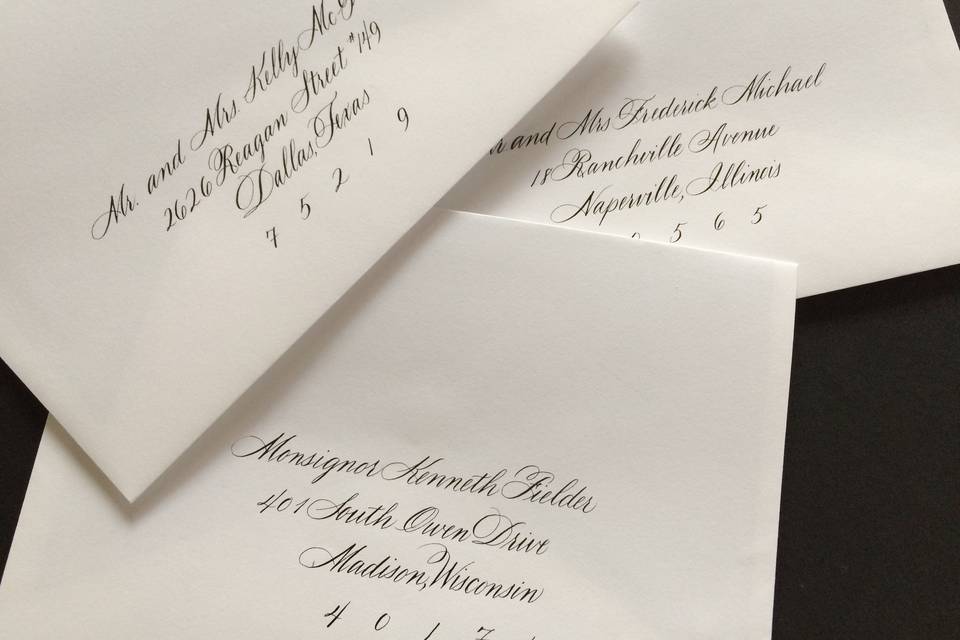 Mr. and Mrs. Kelly
2626 Reagan Street #149
Dallas, Texas
7 5 2 1 9
and Mrs Frederick Michael
18 Ranchville Avenue
Naperville, Illinois
5 6 5
Monsignor Kenneth Fielder
401 South Owen Drive
Madison, Wisconsin
4 0 1 7